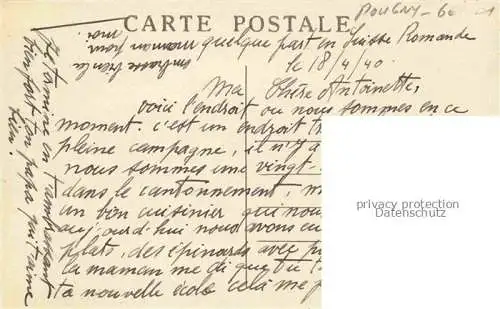 POUGNY-
CARTE POSTALE
quelque part en Suisse Romande
le 18/4/40.
Ma Chère Antoinette,
voici l'endroit ou nous sommes en ce
moment. c'est un endroit
pleine campagne, il n'y a
nous sommes une vingt
dans le cantonnement,
un bon cuisinier qui nou
aujourd'hui nous avons
plats, des épinards avec
la maman me dit que tu
ta nouvelle école celà me
Je termine en t'embrassant
bien fort ton papa qui t'aime
bien.
embrasse bien la
maman pour
moi.
privacy protection
Datenschutz